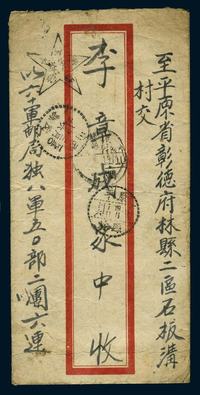 至平原省彰德府林縣二區石板溝
村交
李章成家中收
六十軍郵局獨八軍五〇部二團六連